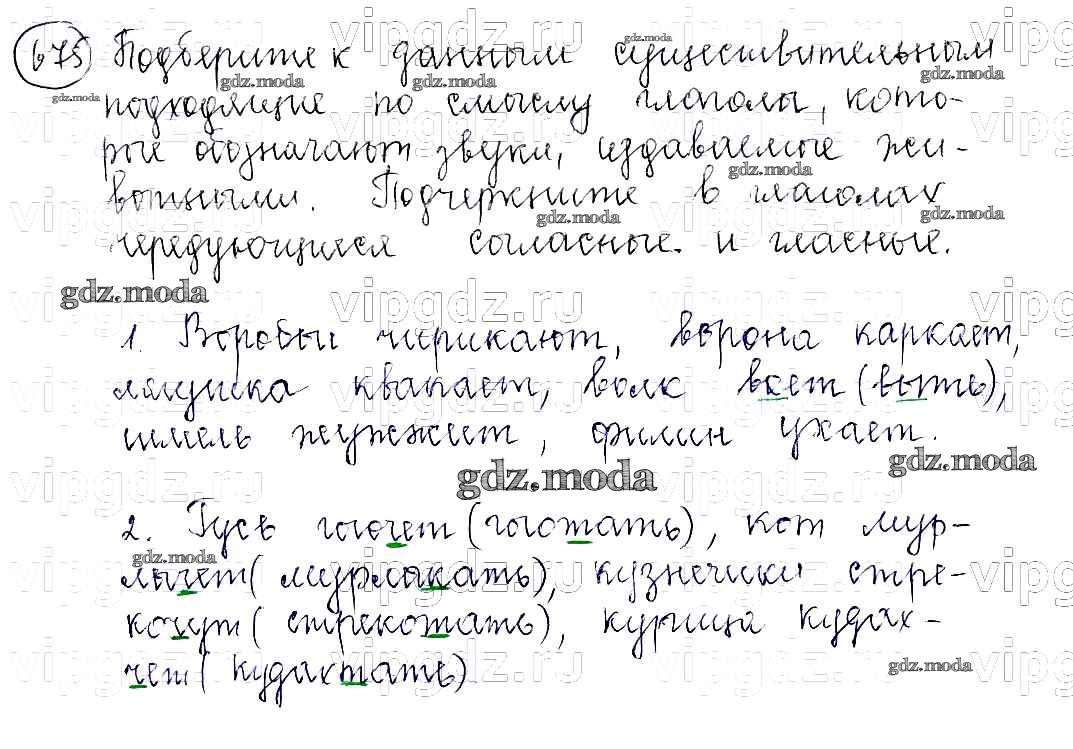 675 Подберите к данным существительным
подходящие по смыслу глаголы, кото-
рые обозначают звуки, издаваемые жи-
вотными. Подчеркните в глаголах
чередующиеся согласные и гласные.
1. Воробьи чирикают, ворона каркает,
лягушка квакает, волк воет (выть),
шмель жужжит, филин ухает.
2. Гусь гогочет (гоготать), кот мур-
лычет (мурлыкать), кузнечики стре-
кочут (стрекотать), курица кудах-
чет (кудахтать)
vipgdz.ru
gdz.moda